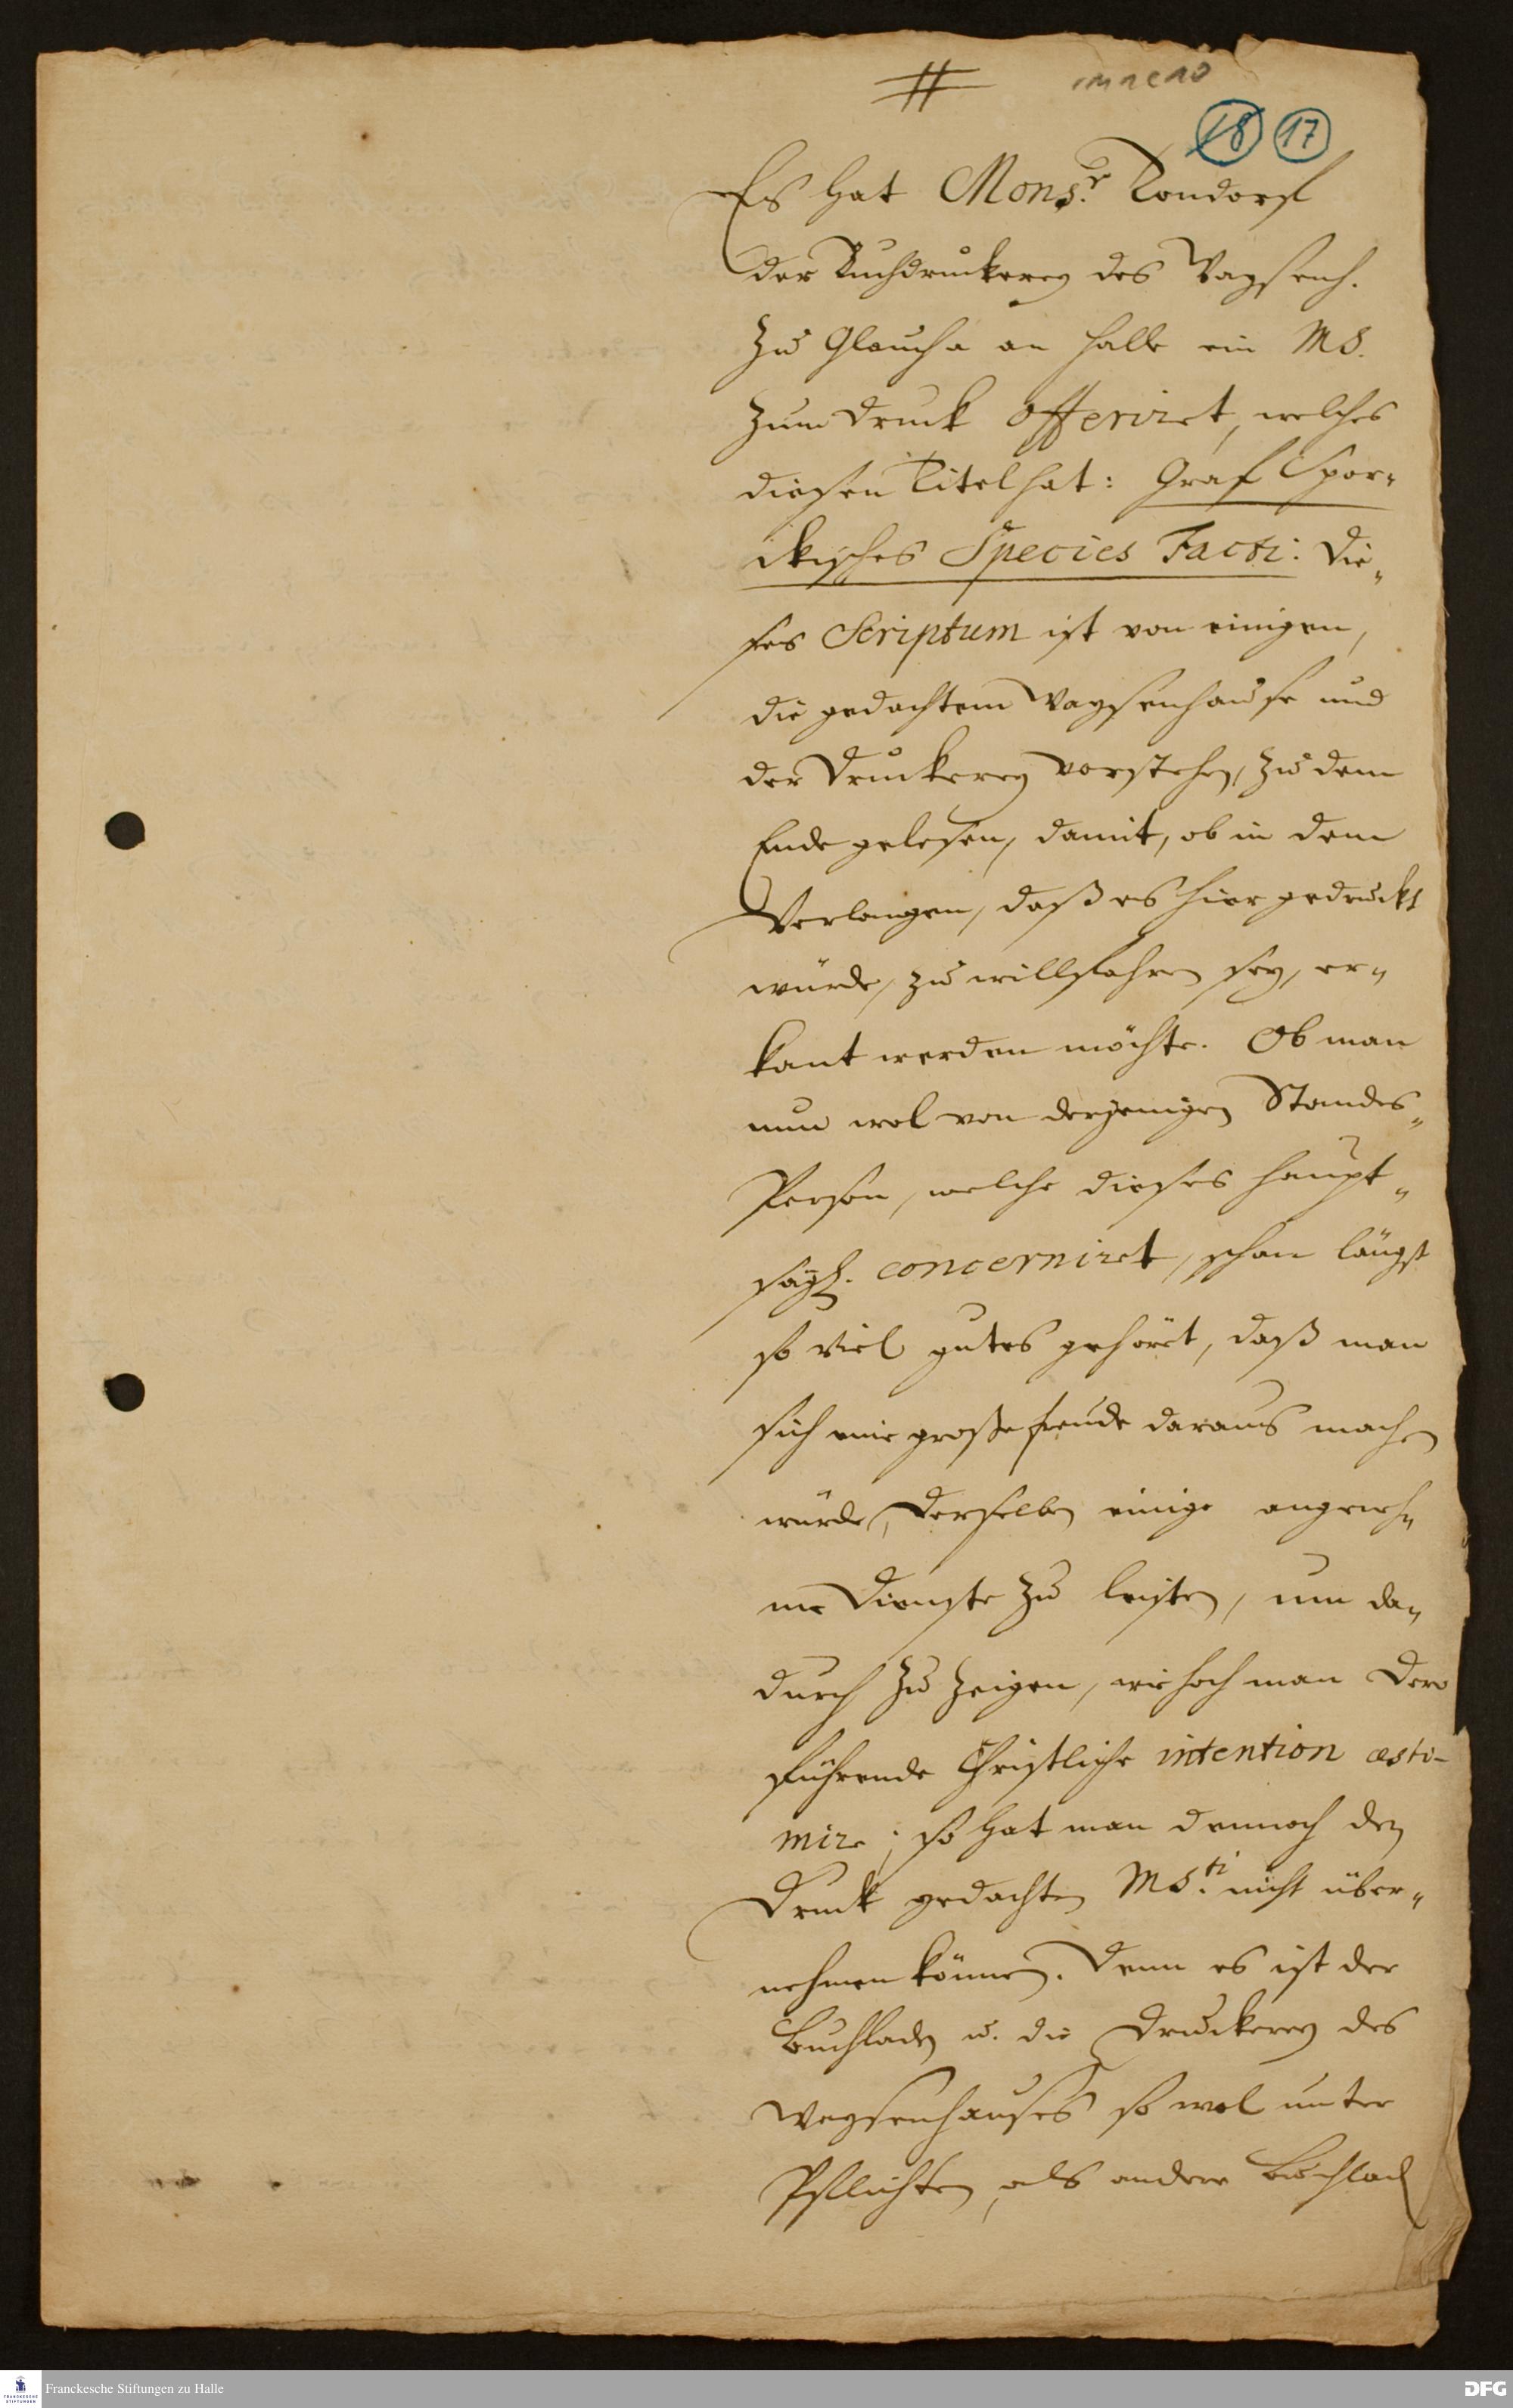 18 17
Es hat Mons.r Rondorf
der Buchdruckerey des Waysenh.
zu Glaucha an Halle ein MS.
zum Druck offeriret, welches
diesen Titel hat: Graf Spor-
ckisches Species Facti: Die-
ses Scriptum ist von einigen,
die gedachtem Waysenhause und
der Druckerey vorstehen, zu dem
Ende gelesen, damit, ob in dem
Verlangen, daß es hier gedruckt
würde, zu willfahren sey, er-
kant werden möchte. Ob man
nun wol von derjenigen Standes-
Person, welche dieses haupt-
sächl. concerniret, schon längst
so viel gutes gehöret, daß man
sich eine große freude daraus machen
würde, derselben einige angeneh-
me Dienste zu leisten, um da-
durch zu zeigen, wie hoch man Dero
führende Christliche intention æsti-
mire; so hat man dennoch den
Druck gedachten MS.ti nicht über-
nehmen können. Denn es ist der
Buchladen u. die Druckerey des
Waysenhauses so wol unter
Pflichten, als andere Buchlad
Franckesche Stiftungen zu Halle
FRANCKESCHE STIFTUNGEN
DFG